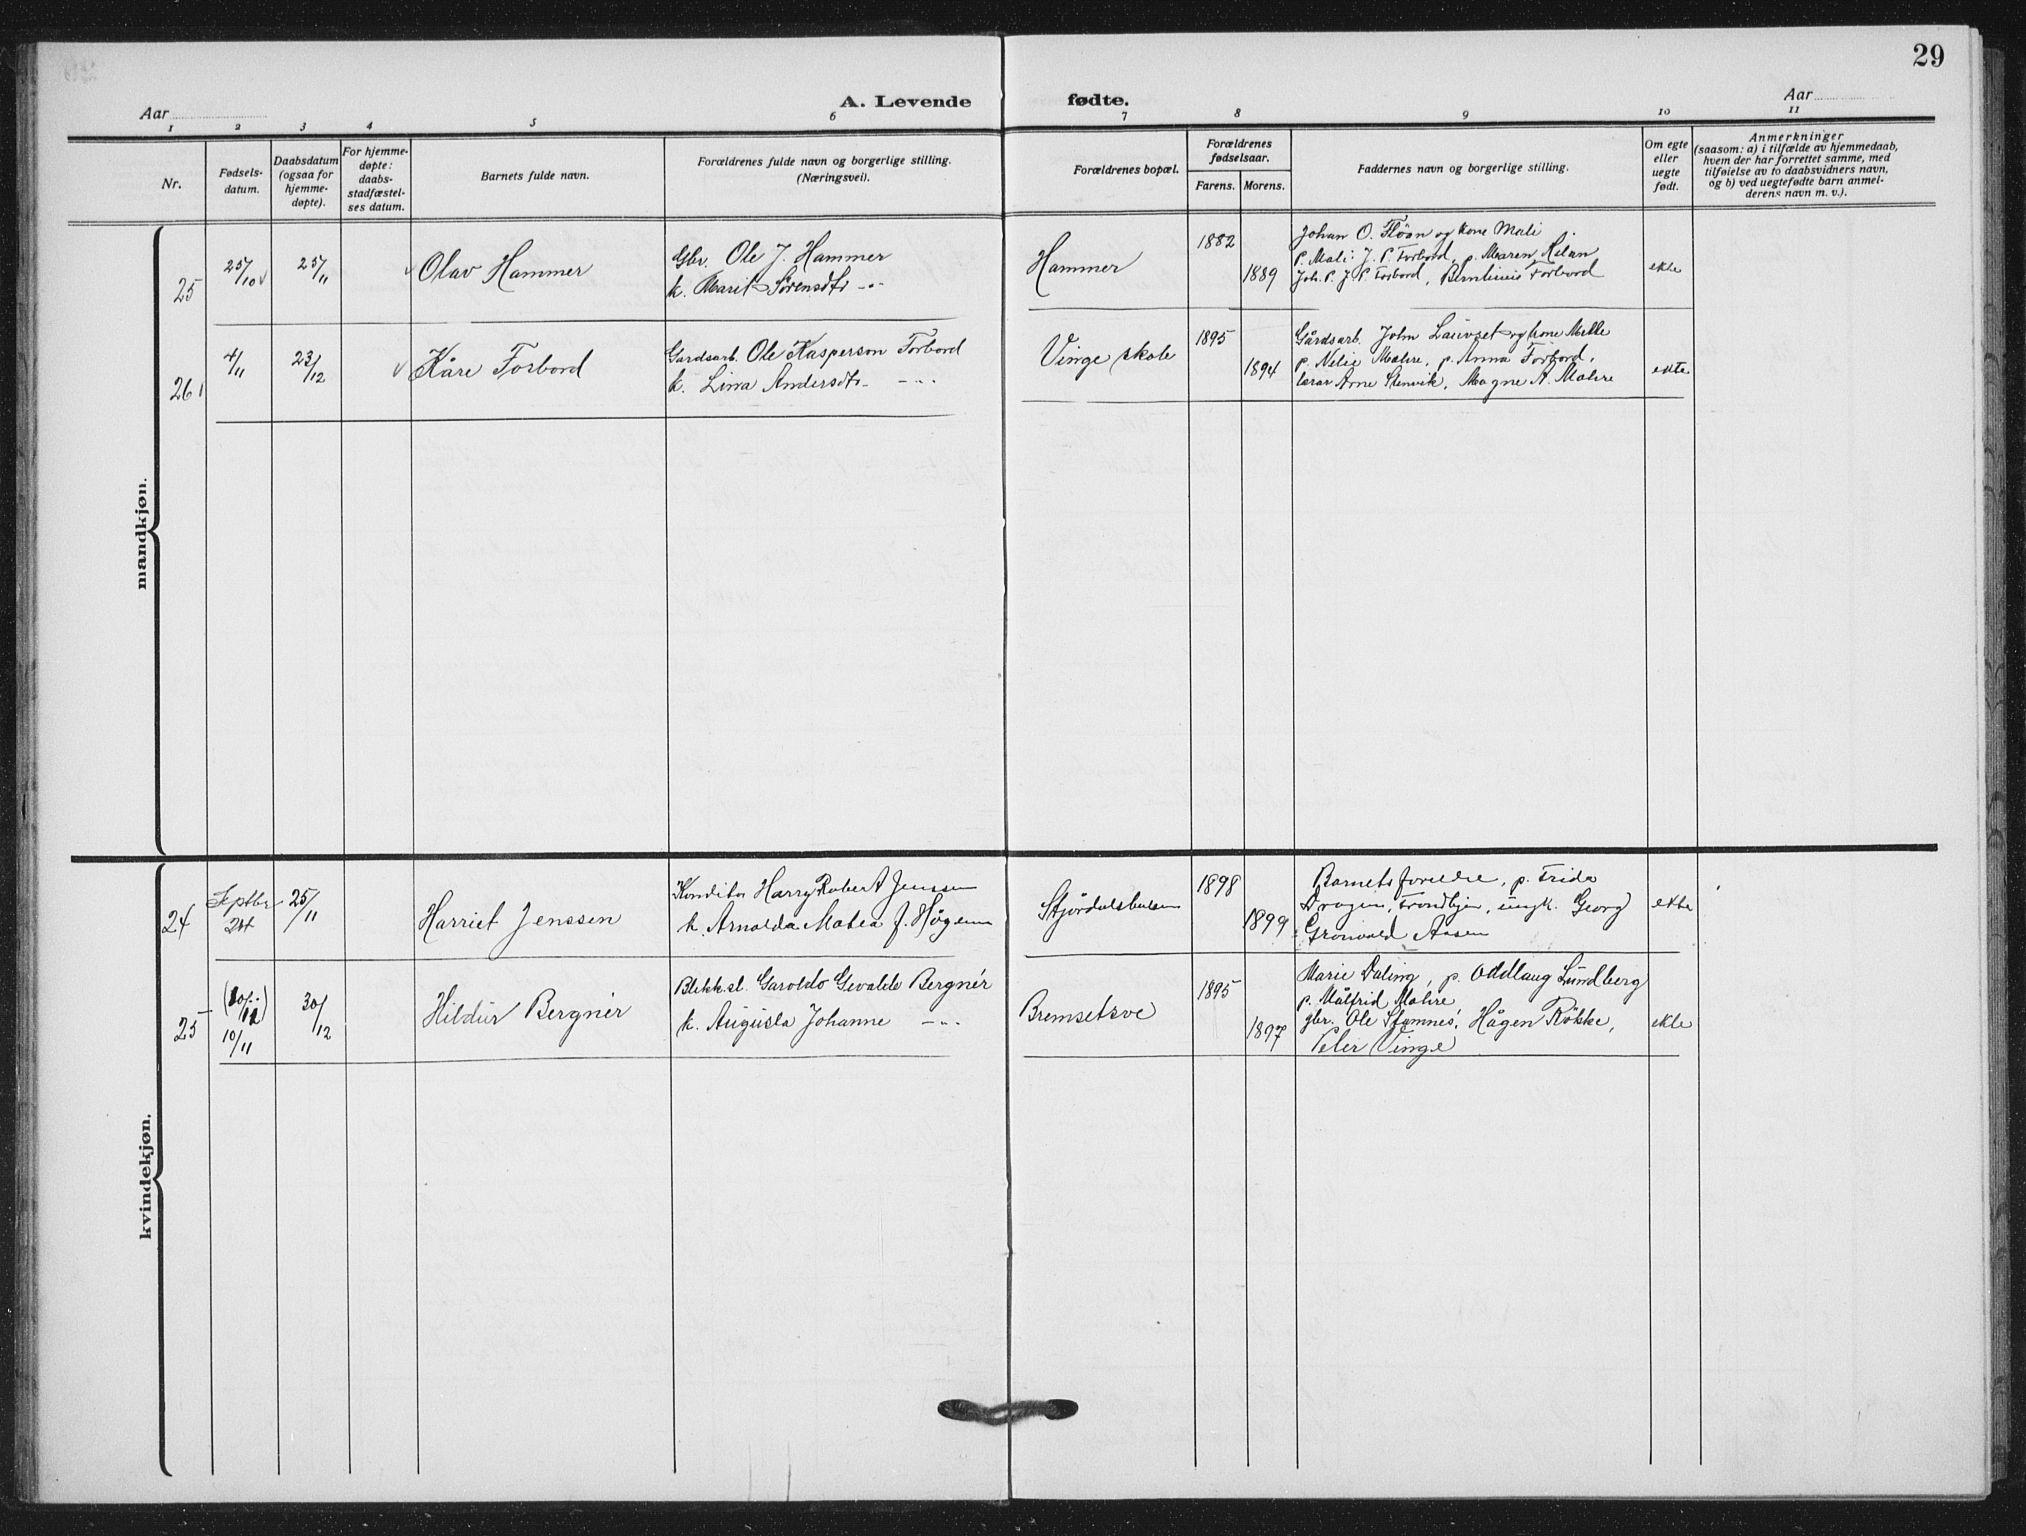 29
Aar
A. Levende fødte.
Aar
1 2 3 4 5 6 7 8 9 10 11
Nr.
Fødsels-
datum.
Daabsdatum
(ogsaa for
hjemme-
døpte).
For hjemme-
døpte:
daabs-
stadfæstel-
ses datum.
Barnets fulde navn.
Forældrenes fulde navn og borgerlige stilling.
(Næringsvei).
Forældrenes bopæl.
Forældrenes
fødselsaar.
Farens. Morens.
Faddernes navn og borgerlige stilling.
Om egte
eller
uegte
født.
Anmerkninger
(saasom: a) i tilfælde av hjemmedaab,
hvem der har forrettet samme, med
tilføielse av to daabsvidners navn,
og b) ved uegtefødte barn anmel-
derens navn m. v.).
mandkjøn.
25
25/10
25/11
Olav Hammer
Gbr. Ole J. Hammer
k. Marit Sørensdtr -"-
Hammer
1882
1889
Johan O. Fløan og kone Mali
p. Mali J. P. Forbord, p. Maren Hilan
Joh. P. J. P. Forbord, Bernhus Forbord
ekte
26
4/11
23/12
Kåre Forbord
Gardsarb. Ole Kasperson Forbord
k. Lina Andersdtr -"-
Vinge skole
1895
1894
Gårdsarb. John Lauvset og kone Mille
p. Nelie Mahre, p. Anna Forbord,
lærar Arne Stenvik, Magne A. Mahre
ekte
kvindekjøn.
24
Septbr
24
25/11
Harriet Jenssen
Konditor Harry Robert Jenssen
k. Arnolda Matea f. Høgenn
Stjørdalshalsen
1898
1899
Barnets foreldre, p. Frida
Dragen, Trondhjem, ungk. Georg
Grönvold Aasen
ekte
25
(10/12)
10/11
30/12
Hildur Bergnér
Blikk.sl. Garoldo Gevaldo Bergnér
k. Augusta Johanne -"-
Bremsetsve
1895
1897
Marie Daling, p. Oddlaug Lundberg
p. Målfrid Mahre
gbr. Ole Stamnes, Hågen Røkke,
Peter Vinge
ekte